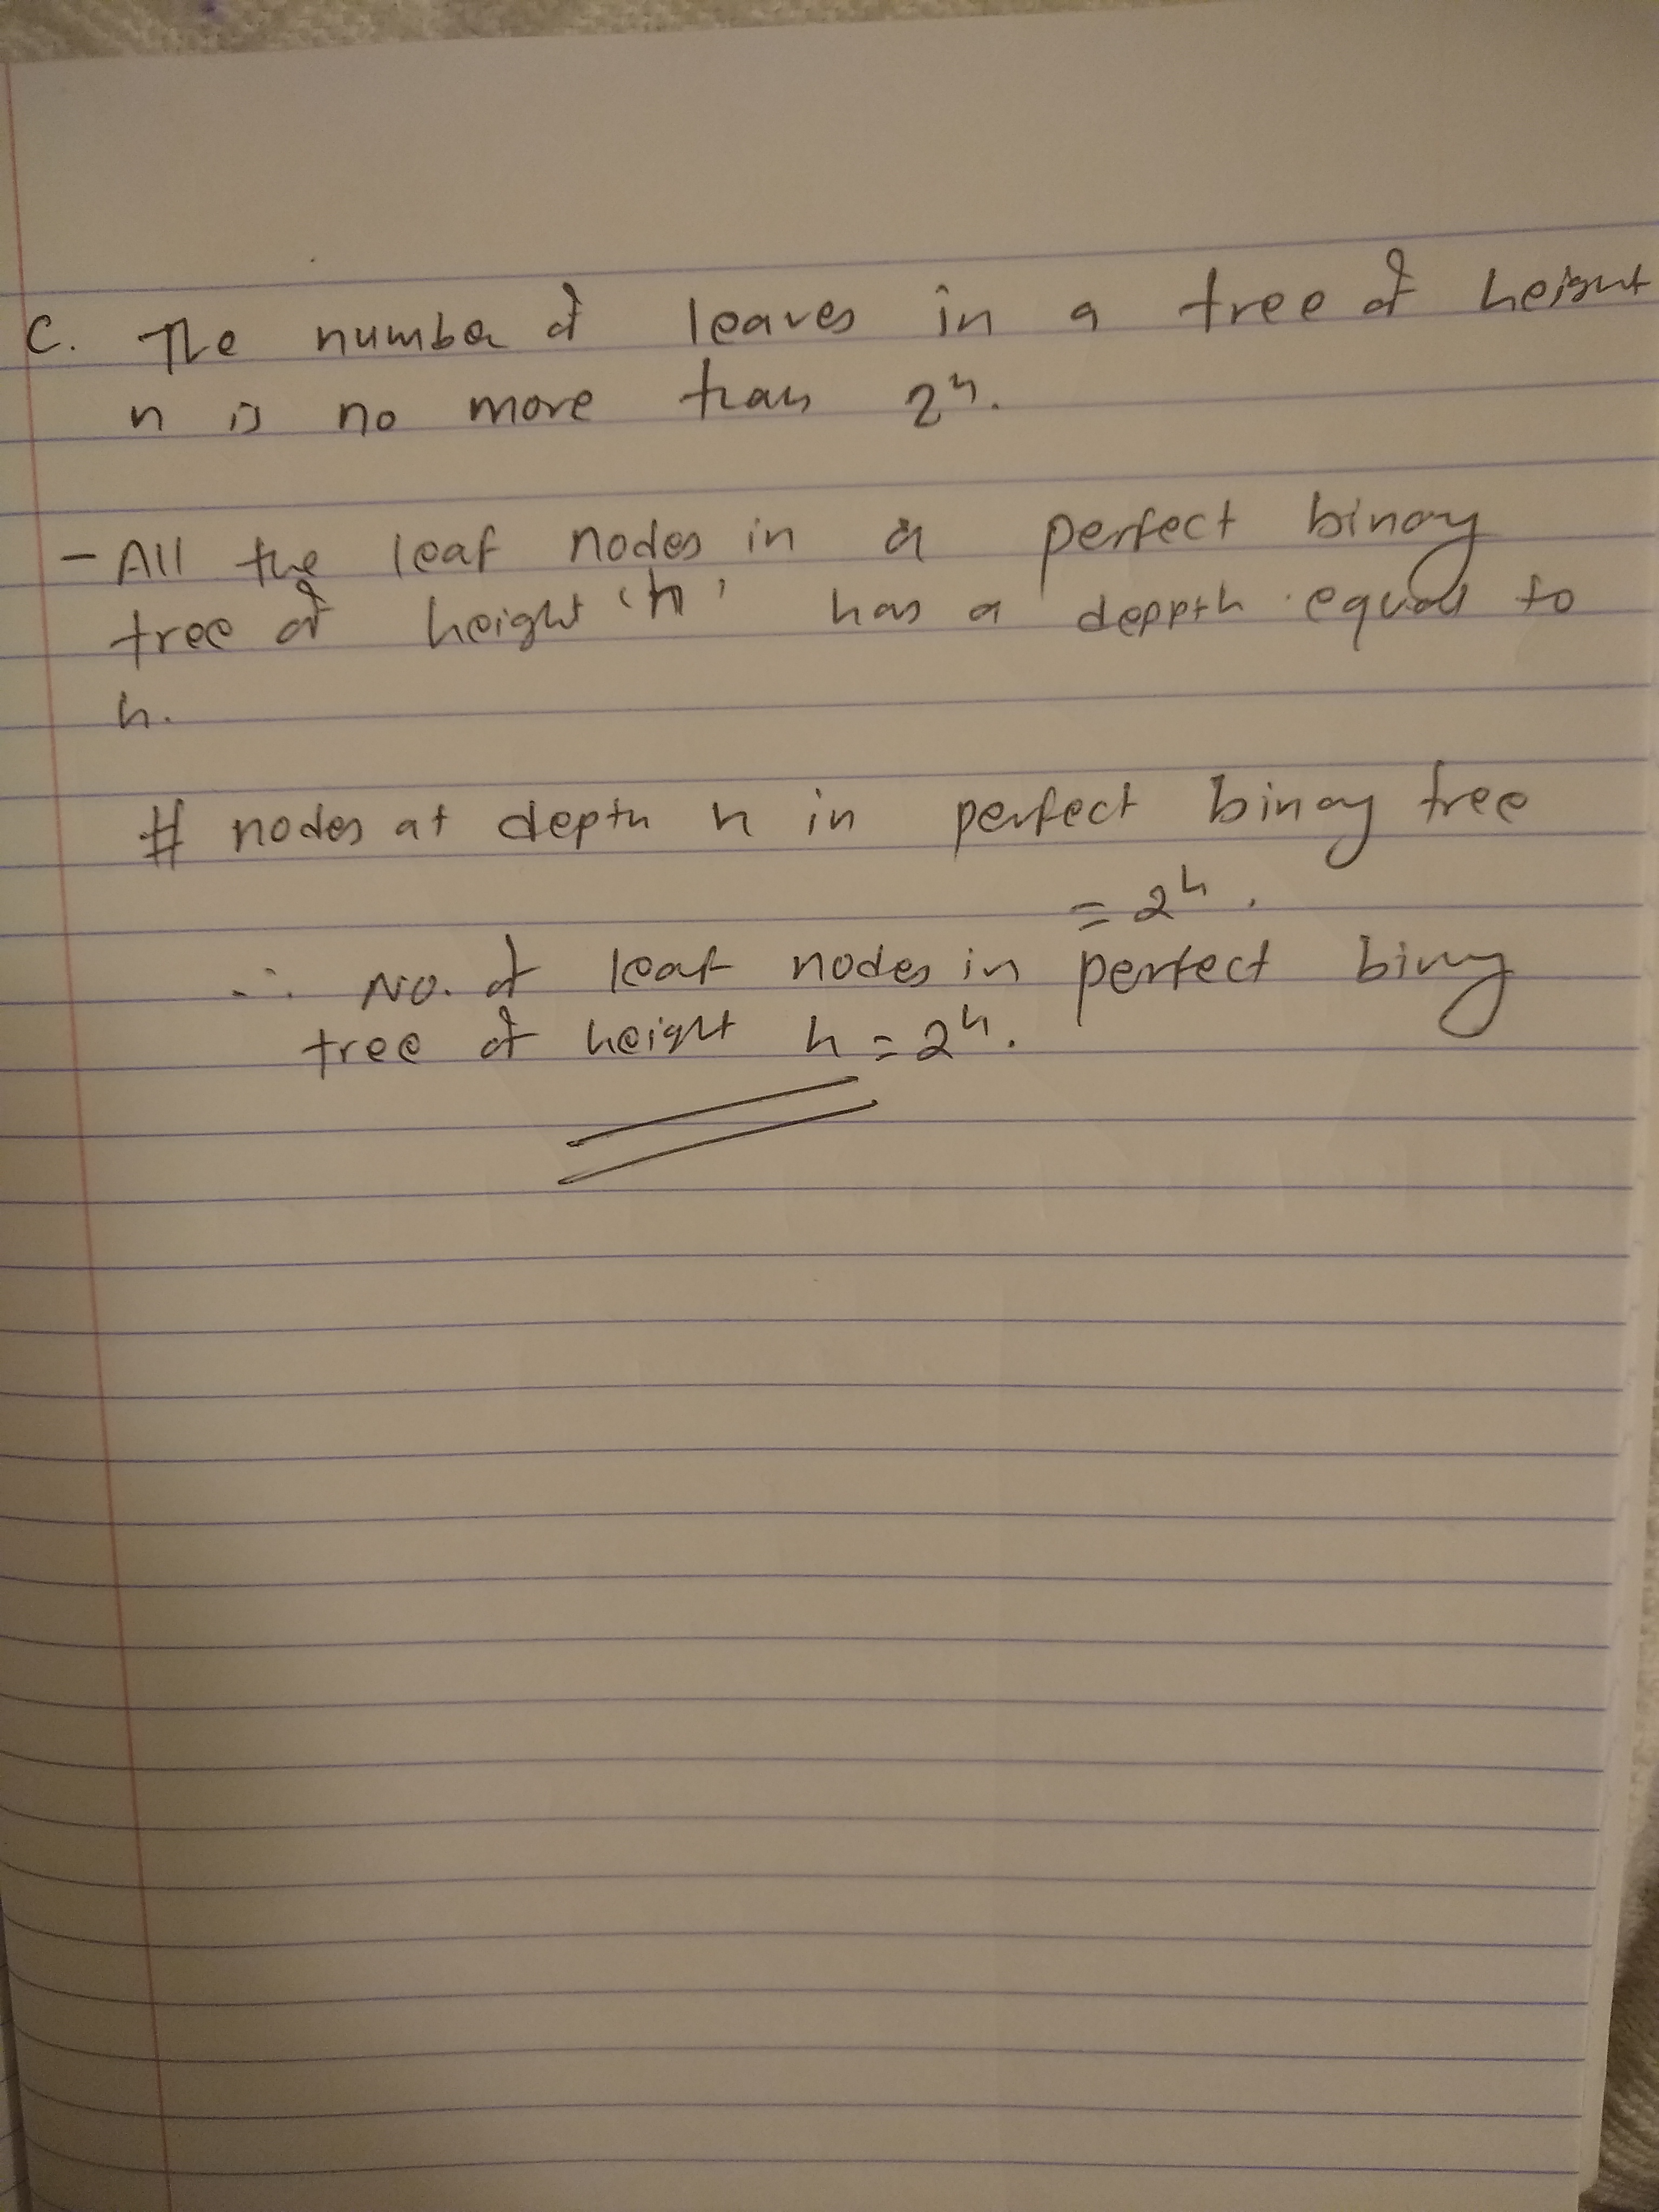 C. The number of leaves in a tree of height
n is no more than 2ⁿ.
- All the leaf nodes in a perfect binary
tree of height 'h' has a deppth equal to
h.
# nodes at depth h in perfect binary tree
= 2ʰ.
∴ No. of leaf nodes in perfect binary
tree of height h = 2ʰ.